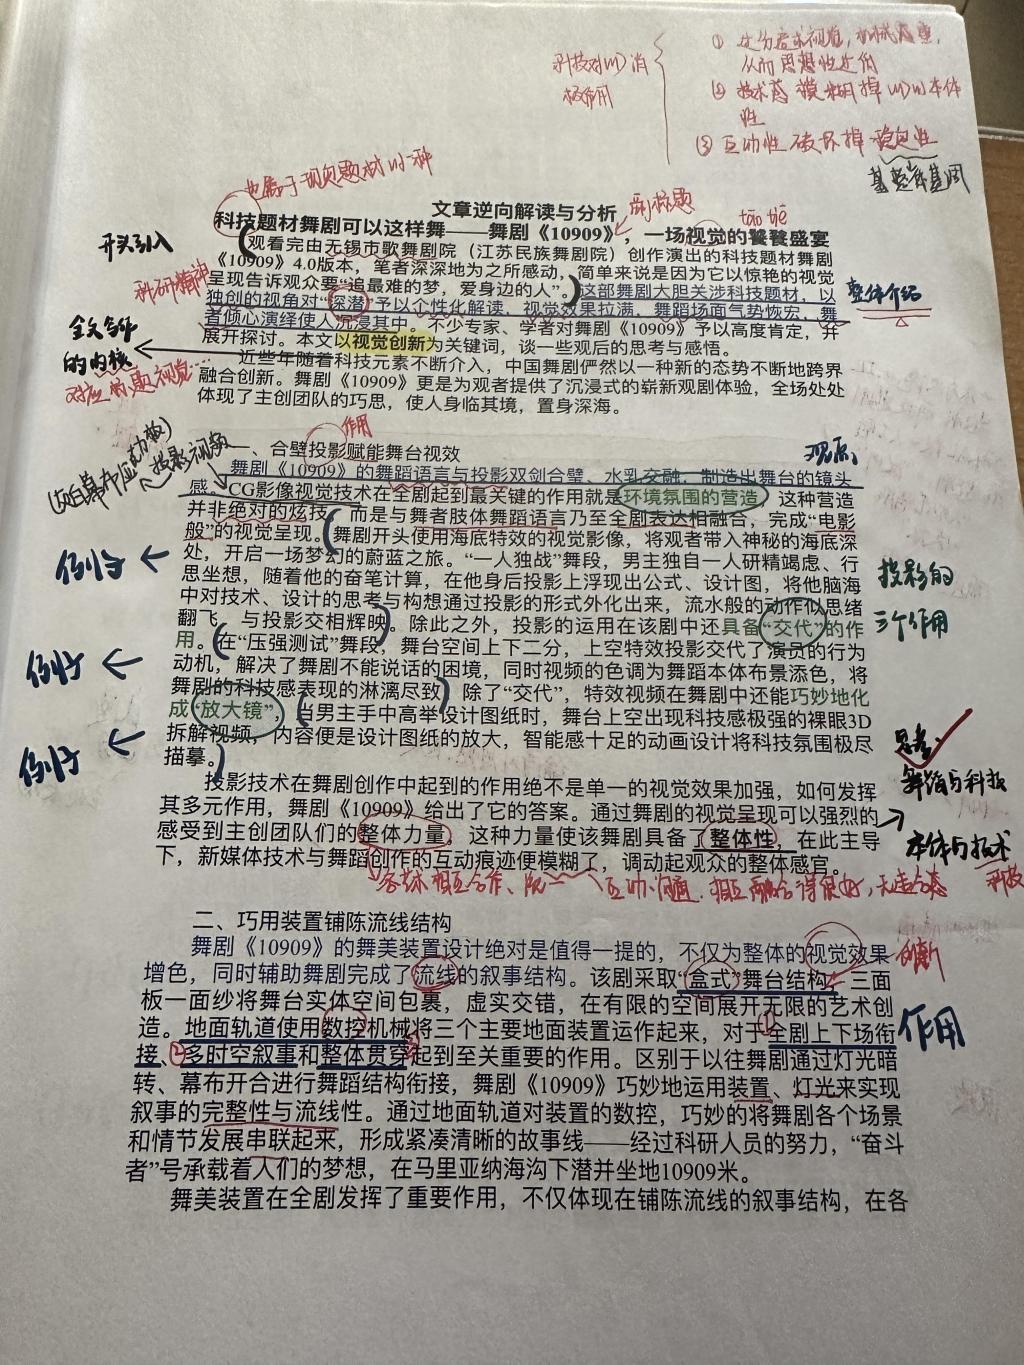 ① 过分屠求视觉，机械感重，
科技对(W)消
极作用
从而思想性过低
② 技术感模糊掉(W)的本体
性
③ 互动性破坏掉稳定性
基整体基调
也属于现实题材的一种
文章逆向解读与分析
副标题
tāo tiè
科技题材舞剧可以这样舞——舞剧《10909》，一场视觉的饕餮盛宴
开头引入
观看完由无锡市歌舞剧院（江苏民族舞剧院）创作演出的科技题材舞剧
《10909》4.0版本，笔者深深地为之所感动，简单来说是因为它以惊艳的视觉
科研精神
呈现告诉观众要“追最难的梦，爱身边的人”。这部舞剧大胆关涉科技题材，以
整体介绍
独创的视角对“深潜”予以个性化解读，视觉效果拉满，舞蹈场面气势恢宏，舞
者倾心演绎使人沉浸其中。不少专家、学者对舞剧《10909》予以高度肯定，并
全文合环
的内核
展开探讨。本文以视觉创新为关键词，谈一些观后的思考与感悟。
近些年随着科技元素不断介入，中国舞剧俨然以一种新的态势不断地跨界
对应的题视觉……
融合创新。舞剧《10909》更是为观者提供了沉浸式的崭新观剧体验，全场处处
体现了主创团队的巧思，使人身临其境，置身深海。
作用
一、合璧投影赋能舞台视效
观点
投影视频
舞剧《10909》的舞蹈语言与投影双剑合璧、水乳交融，制造出舞台的镜头
感。CG影像视觉技术在全剧起到最关键的作用就是环境氛围的营造，这种营造
并非绝对的炫技，而是与舞者肢体舞蹈语言乃至全剧表达相融合，完成“电影
般”的视觉呈现。舞剧开头使用海底特效的视觉影像，将观者带入神秘的海底深
例子
处，开启一场梦幻的蔚蓝之旅。“一人独战”舞段，男主独自一人研精竭虑、行
投影的
三个作用
思坐想，随着他的奋笔计算，在他身后投影上浮现出公式、设计图，将他脑海
中对技术、设计的思考与构想通过投影的形式外化出来，流水般的动作似思绪
翻飞，与投影交相辉映。除此之外，投影的运用在该剧中还具备“交代”的作
用。在“压强测试”舞段，舞台空间上下二分，上空特效投影交代了演员的行为
例子
动机，解决了舞剧不能说话的困境，同时视频的色调为舞蹈本体布景添色，将
舞剧的科技感表现的淋漓尽致。除了“交代”，特效视频在舞剧中还能巧妙地化
成“放大镜”，当男主手中高举设计图纸时，舞台上空出现科技感极强的裸眼3D
例子
拆解视频，内容便是设计图纸的放大，智能感十足的动画设计将科技氛围极尽
描摹。
思考
舞蹈与科技
投影技术在舞剧创作中起到的作用绝不是单一的视觉效果加强，如何发挥
其多元作用，舞剧《10909》给出了它的答案。通过舞剧的视觉呈现可以强烈的
感受到主创团队们的整体力量，这种力量使该舞剧具备了整体性，在此主导
本体与技术
科技
下，新媒体技术与舞蹈创作的互动痕迹便模糊了，调动起观众的整体感官。
互动沟通，相互融合得很好，无违合感
二、巧用装置铺陈流线结构
舞剧《10909》的舞美装置设计绝对是值得一提的，不仅为整体的视觉效果
创新
增色，同时辅助舞剧完成了流线的叙事结构。该剧采取“盒式”舞台结构，三面
板一面纱将舞台实体空间包裹，虚实交错，在有限的空间展开无限的艺术创
造。地面轨道使用数控机械将三个主要地面装置运作起来，对于①全剧上下场衔
作用
接、②多时空叙事和整体贯穿③起到至关重要的作用。区别于以往舞剧通过灯光暗
转、幕布开合进行舞蹈结构衔接，舞剧《10909》巧妙地运用装置、灯光来实现
叙事的完整性与流线性。通过地面轨道对装置的数控，巧妙的将舞剧各个场景
和情节发展串联起来，形成紧凑清晰的故事线——经过科研人员的努力，“奋斗
者”号承载着人们的梦想，在马里亚纳海沟下潜并坐地10909米。
舞美装置在全剧发挥了重要作用，不仅体现在铺陈流线的叙事结构，在各